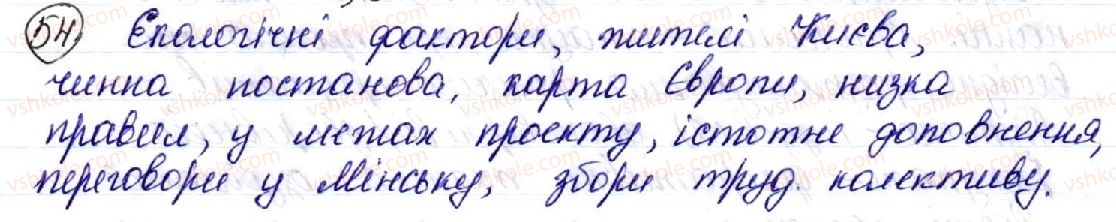 54) Екологічні фактори, жителі Києва,
чинна постанова, карта Європи, низка
правил, у межах проекту, істотне доповнення,
переговори у Мінську, збори труд. колективу.